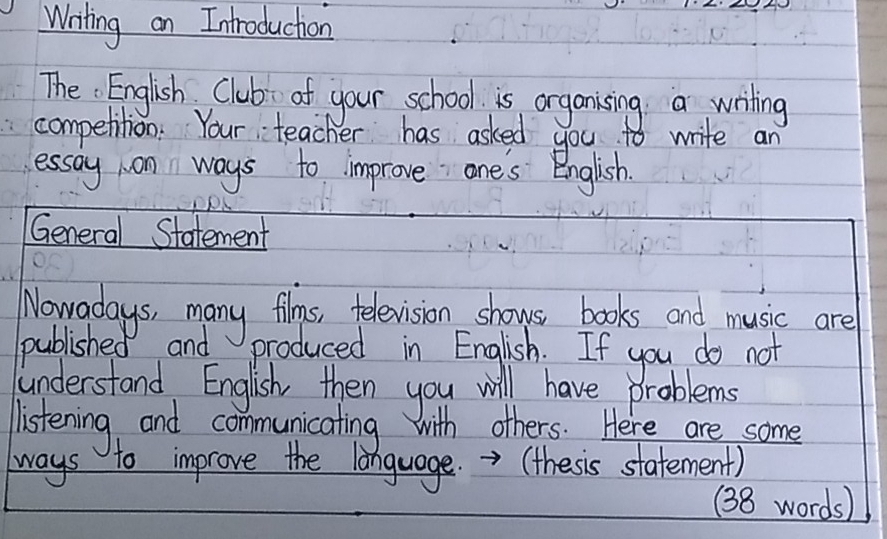 Writing an Introduction
The English Club of your school is organising a writing
competition. Your teacher has asked you to write an
essay on ways to improve one's English.
General Statement
Nowadays, many films, television shows, books and music are
published and produced in English. If you do not
understand English, then you will have problems
listening and communicating with others. Here are some
ways to improve the language. → (thesis statement)
(38 words)